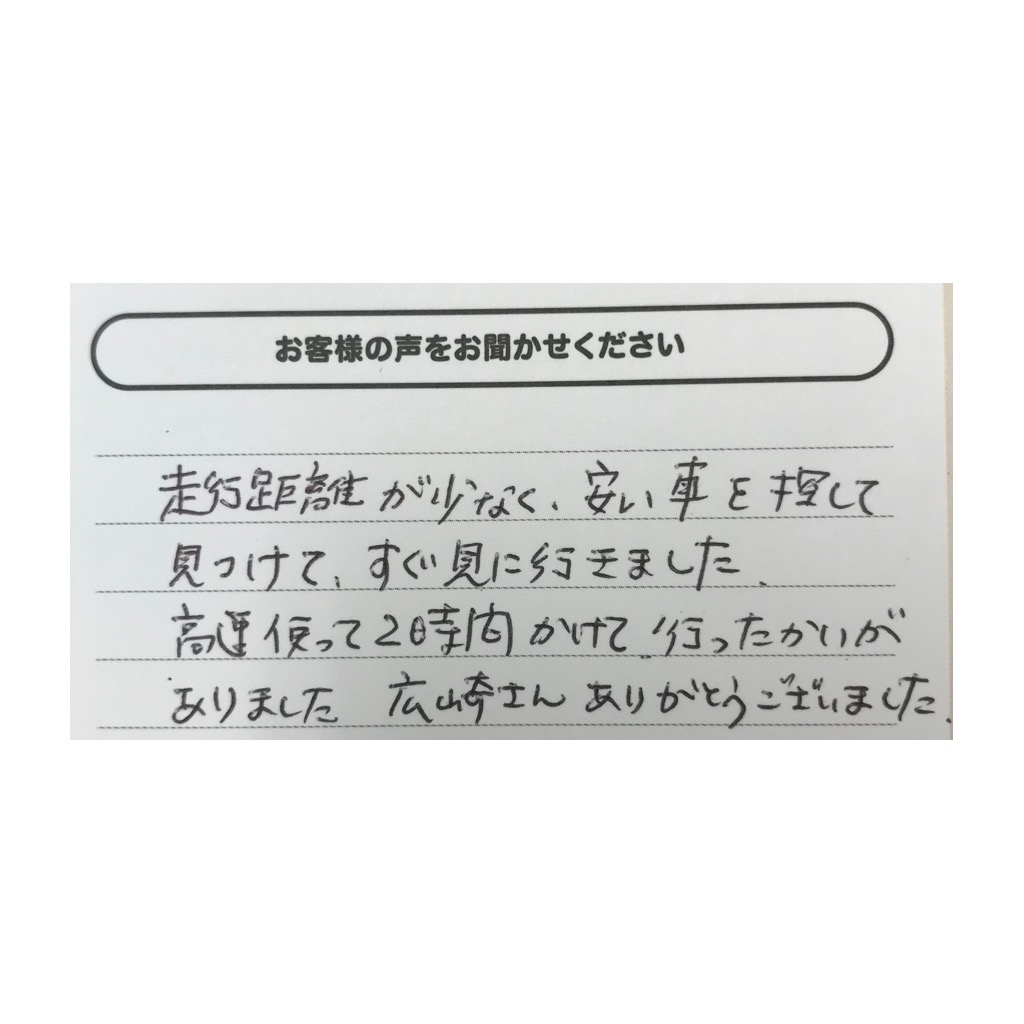 お客様の声をお聞かせください
走行距離が少なく、安い車を探して
見つけて、すぐ見に行きました。
高速使って2時間かけて行ったかいが
ありました 広崎さんありがとうございました。